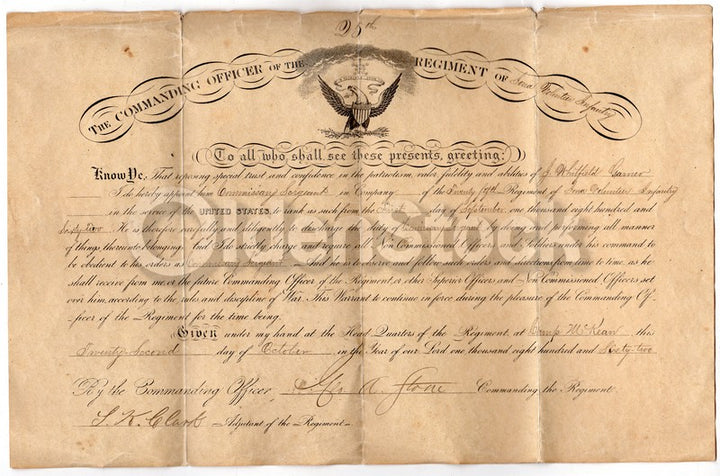 25th
THE COMMANDING OFFICER OF THE REGIMENT OF Iowa Volunteer Infantry
To all who shall see these presents, greeting:
Know Ye, That reposing special trust and confidence in the patriotism, valor, fidelity and abilities of J. Whitfield Garner
I do hereby appoint him Commissary Sergeant in Company of the Twenty fifth Regiment of Iowa Volunteer Infantry
in the service of the UNITED STATES, to rank as such from the day of September one thousand eight hundred and
Sixty two He is therefore carefully and diligently to discharge the duty of by doing and performing all manner
of things thereunto belonging. And I do strictly charge and require all Non-Commissioned Officers and Soldiers under his command to
be obedient to his orders as Commissary Sergeant And he is to observe and follow such orders and directions from time to time, as he
shall receive from me, or the future Commanding Officer of the Regiment, or other Superior Officers and Non-Commissioned Officers set
over him, according to the rules and discipline of War. This Warrant to continue in force during the pleasure of the Commanding Of-
ficer of the Regiment for the time being.
Given under my hand at the Head Quarters of the Regiment, at Camp McKean this
Twenty Second day of October in the Year of our Lord one thousand eight hundred and Sixty-two
By the Commanding Officer, Geo. A. Stone Commanding the Regiment
S. K. Clark Adjutant of the Regiment.